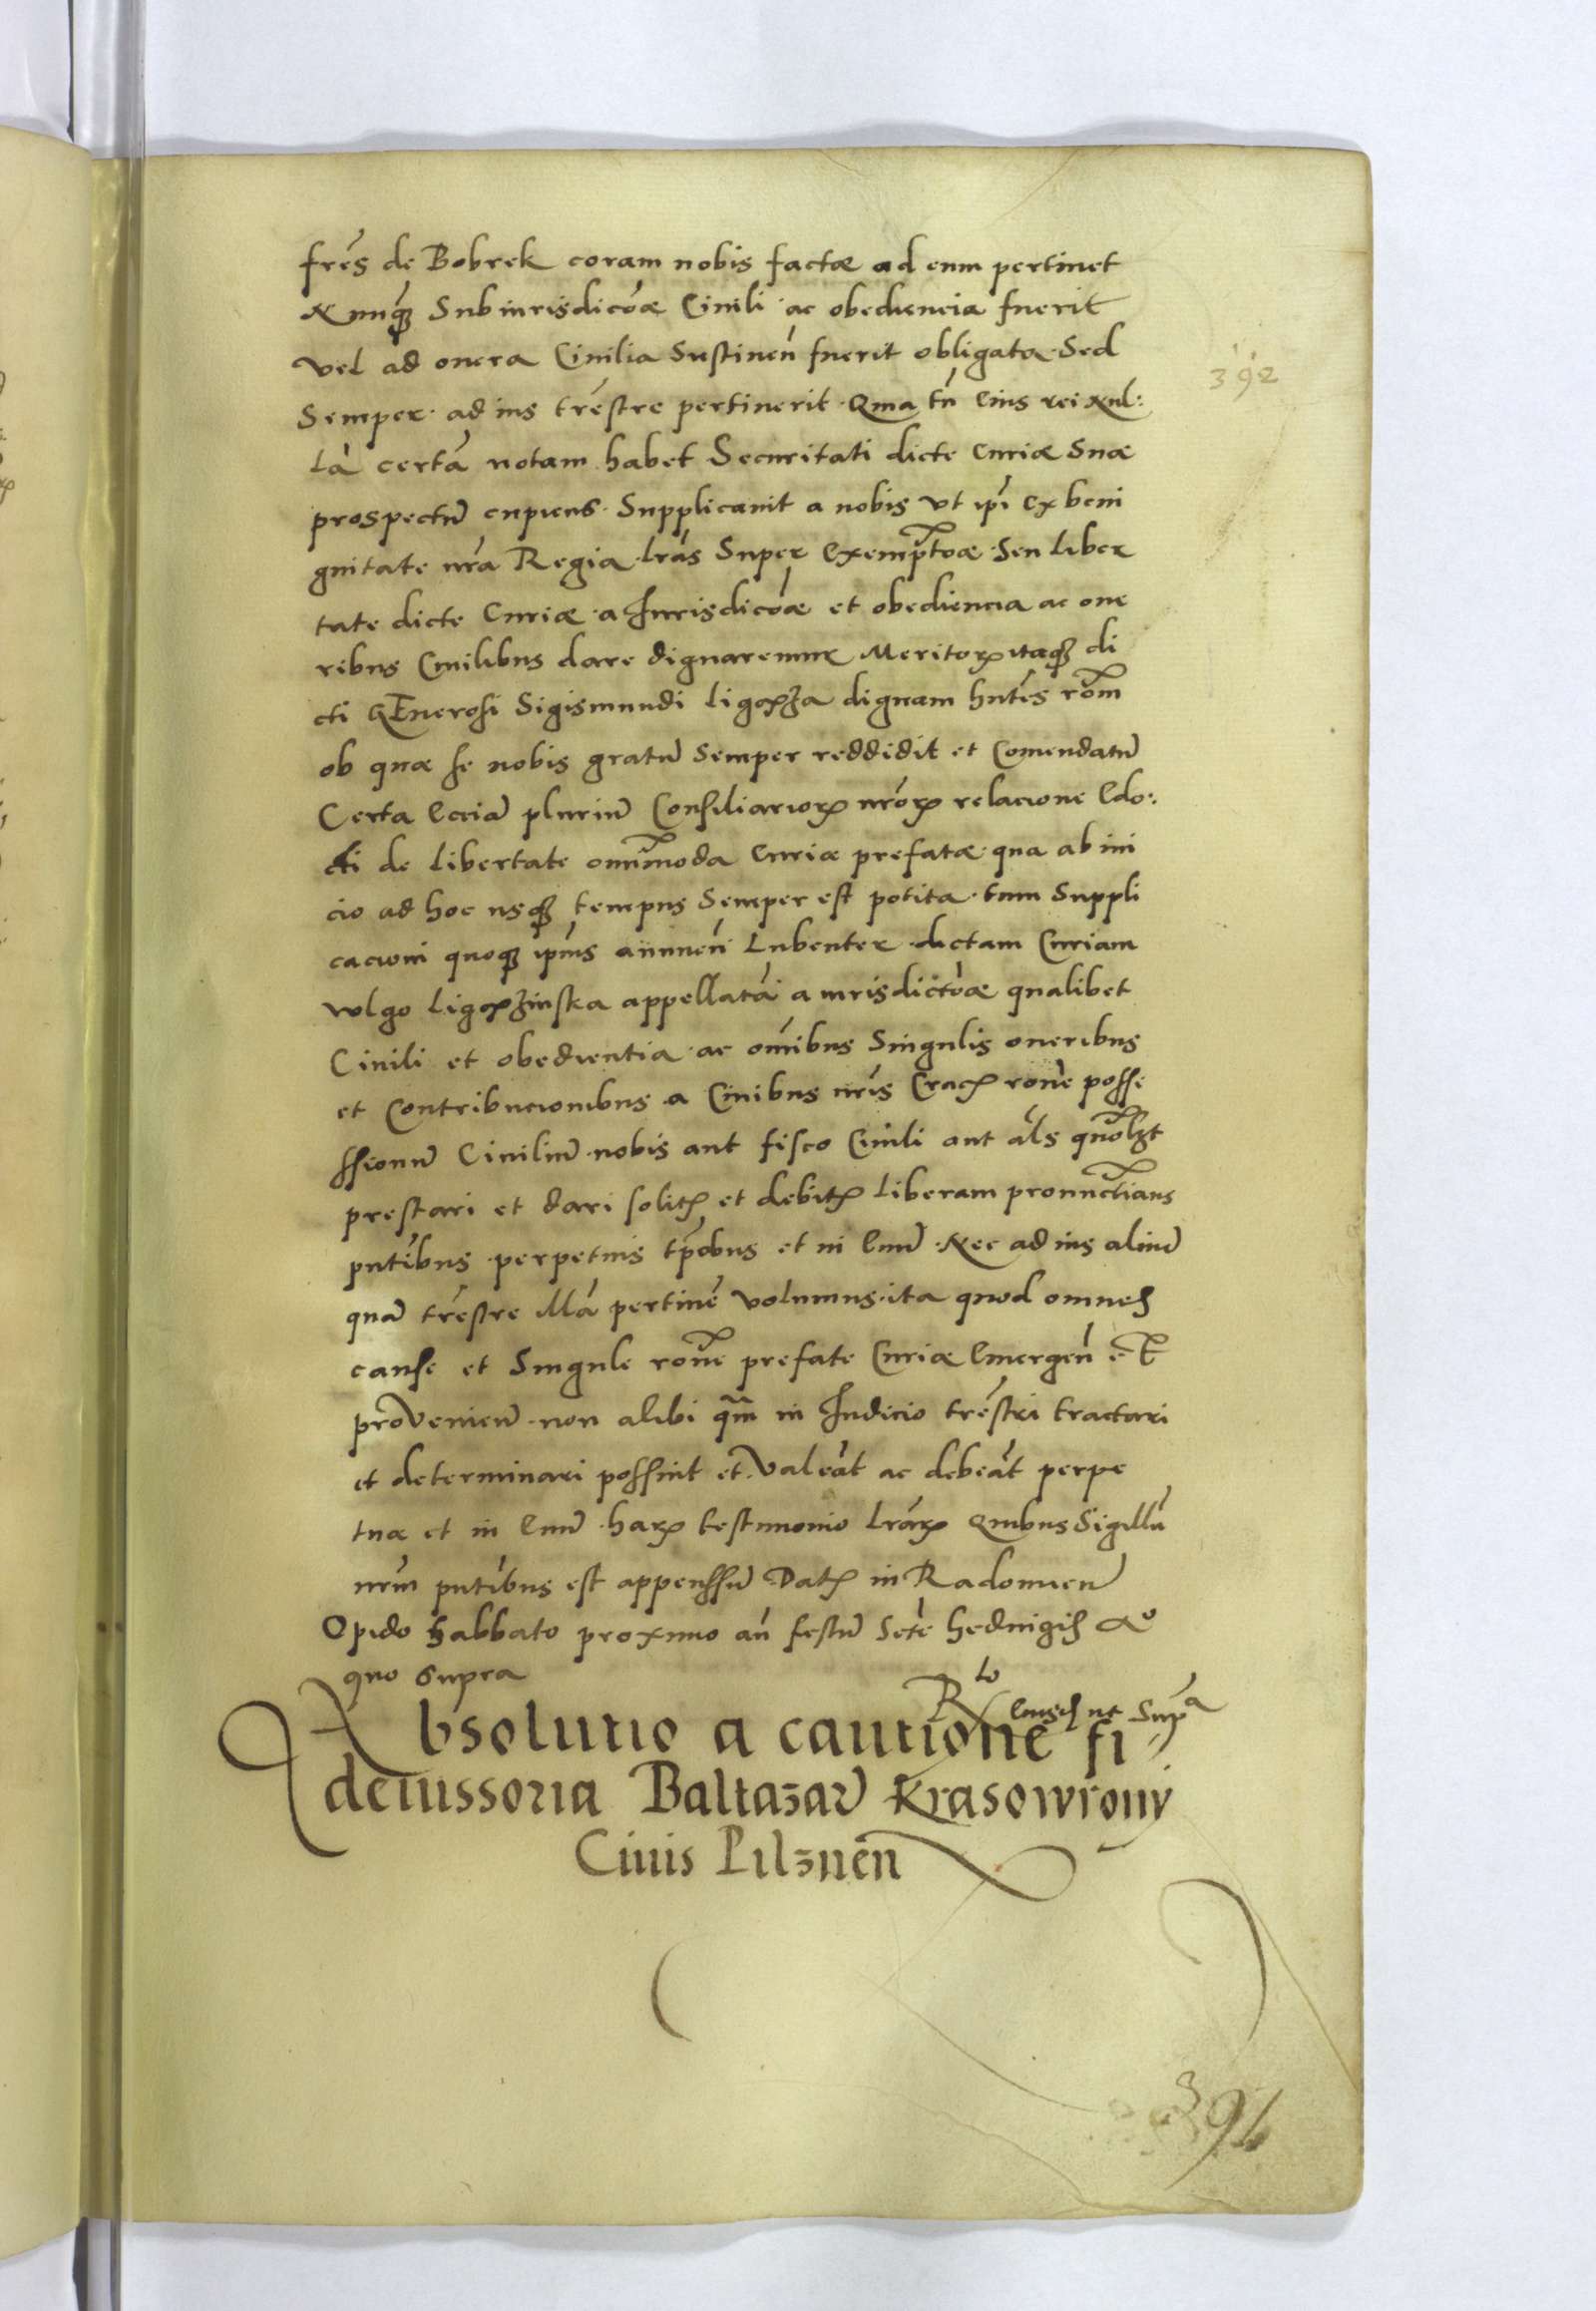 fre͂s de Bobrek coram nobis factæ ad eum pertinet
Nunq̃ꝫ Sub iurisdicōe Ciuili ac obediencia fuerit
vel ad onera Ciuilia Sustineñ fuerit obligata. Sed
Semper ad ius tr̃estre pertinerit. Quia tñ Eius rei Nul:
lã certã notam habet Securitati dicte Curiæ Suæ
prospectũ cupiens. Supplicauit a nobis vt ip̃i ex beni
gnitate nr̃a Regia lr̃as Super Exemptõe Seu liber
tate dicte Curiæ a Jurisdicõe et obediencia ac one
ribus Ciuilibus dare dignaremur Meritoꝝ itaqꝫ di
cti GEnerosi Sigismundi Ligąza dignam hñtes rõem
ob quæ se nobis gratũ Semper reddidit et Comendatũ
Certa Eciã pluriũ Consiliarioꝝ nr̃oꝝ relacione Edo:
cti de libertate omĩmoda Curiæ prefatæ qua ab ini
cio ad hoc usqꝫ tempus Semper est potita tum Suppli
cacioni quoqꝫ ip̃ius annueñ Lubenter dictam Curiam
vulgo Ligązinska appellatã a iurisdictõe qualibet
Ciuili et obedientia ac om̃ibus Singulis oneribus
et Contribucionibus a Ciuibus nr̃is Cracꝭ rõne posse
ssionũ Ciuiliũ nobis aut fisco Ciuili aut al̃s quõlꝫt
prestari et dari solitꝭ et debitꝭ liberam pronũctians
pñtibus perpetuis tp̃obus et in Euũ Nec ad ius aliud
quã tr̃estre illã pertiñe volumus ita quod omnes
cause et Singule rõne prefate Curiæ Emergeñ Et
prouenieñ non alibi q̃m in Judicio tr̃estri tractari
et determinari possint et Valeãt ac debeãt perpe
tuæ et in Euũ haꝝ testimonio lr̃aꝝ Quibus Sigillũ
nr̃m pñtibus est appenssũ Datꝭ in Radomień
Opido Sabbato proximo añ festũ Sc̃te Heduigis Aº
quo supra
Rlo Eiusd̃ ut Supª
Absolutio a cautione fi
deiussoria Baltazar Krasowrony
Ciuis Pilzneñ
392
394